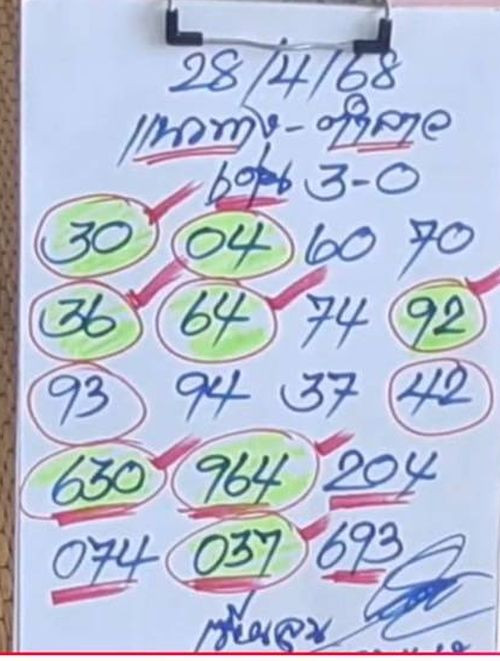 28/4/68
แนวทาง - ทำลาว
เด่น 3-0
30 04 60 70
36 64 74 92
93 94 37 42
630 964 204
074 037 693